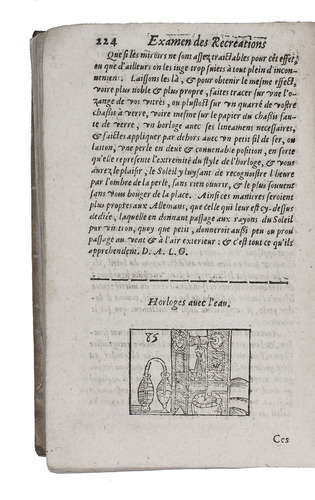 224 Examen des Recreations
Que si les miroirs ne sont assez traictables pour cét effet,
ou que d'ailleurs on les iuge trop suiets à tout plein d'incon-
uenient: Laissons les là, & pour obtenir le mesme effect,
voire plus noble & plus propre, faites tracer sur vne l'o-
zange de vos vitres, ou plustost sur vn quarré de vostre
chassis à verre, voire mesme sur le papier du chassis fau-
te de verre, vn horloge auec ses lineamens necessaires,
& faictes appliquer par dehors auec vn petit fil de fer, ou
laiton, vne perle en deuë & conuenable position, en sorte
qu'elle represente l'extremité du style de l'horloge, & vous
aurez le plaisir, le Soleil y luysant de recognoistre l'heure
par l'ombre de la perle, sans rien ouurir, & le plus souuent
sans vous bouger de la place. Ainsi ces manieres seroient
plus propres aux Allemans, que celle qui leur est cy-dessus
dediée, laquelle en donnant passage aux rayons du Soleil
pur vn trou, quoy que petit, donneroit aussi peu ou prou
passage au vent & à l'air exterieur: & c'est tout ce qu'ils
apprehendent. D. A. L. G.
Horloges auec l'eau.
85
Ces